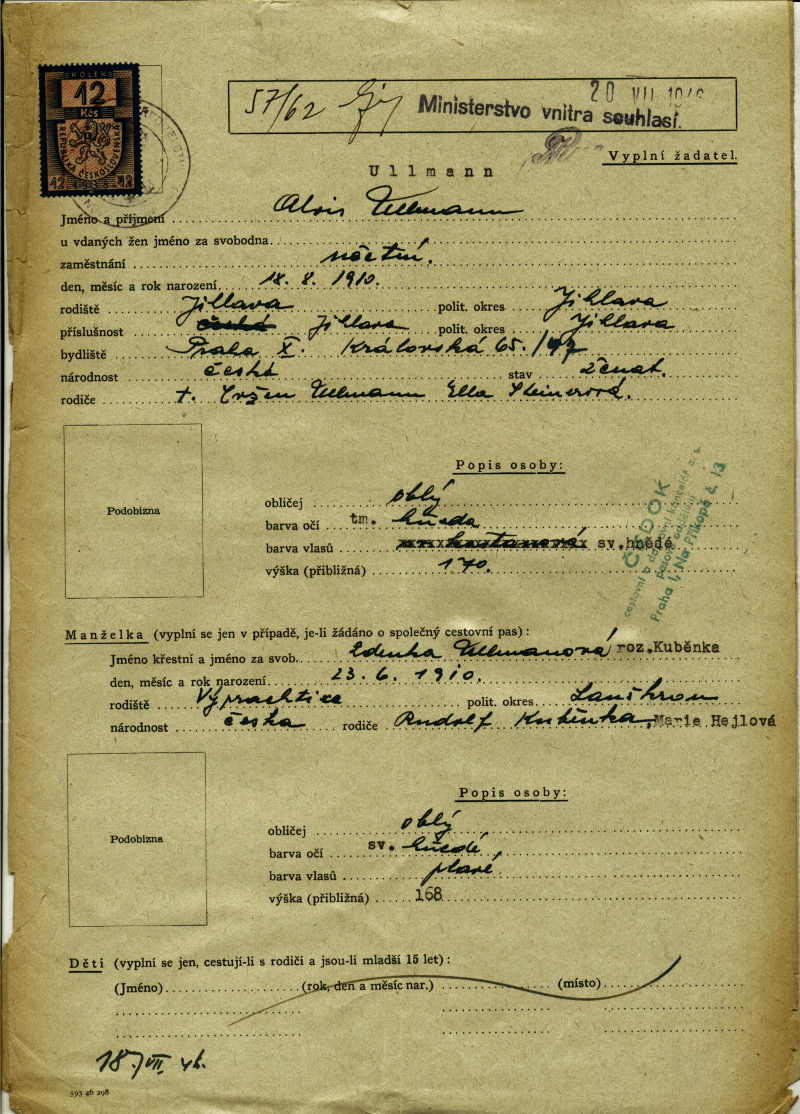 KOLEK
12
Kčs
REPUBLIKA ČESKOSLOVENSKÁ
12 12
57/62
20 VII
Ministerstvo vnitra souhlasí.
Vyplní žadatel.
Ullmann
Jméno a příjmení Alois Ullmann
u vdaných žen jméno za svobodna
zaměstnání účetní.
den, měsíc a rok narození 18. 8. 1910.
rodiště Jihlava polit. okres Jihlava
příslušnost česká Jihlava polit. okres Jihlava
bydliště Praha X. Královská 65./47
národnost česká stav ženat.
rodiče †. Evžen Ullmann Ella Steinerová.
Podobizna
Popis osoby:
obličej oblý
barva očí tm. hnědá
barva vlasů kaštanová sv.hnědé
výška (přibližná) 170.
ČEDOK
cestovní a dopravní kancelář
Praha I, Na Příkopě č. 13
Manželka (vyplní se jen v případě, je-li žádáno o společný cestovní pas):
Jméno křestní a jméno za svob. Zdenka Ullmanová roz.Kuběnka
den, měsíc a rok narození 23. 6. 1910.
rodiště Výprachtice polit. okres Lanškroun
národnost česká rodiče Rudolf Kuběnka, Marie Hejlová
Podobizna
Popis osoby:
obličej oblý
barva očí sv. hnědé
barva vlasů plavé
výška (přibližná) 168
Děti (vyplní se jen, cestují-li s rodiči a jsou-li mladší 15 let):
(Jméno) (rok, den a měsíc nar.) (místo)
18./VII. 46.
593 46 298